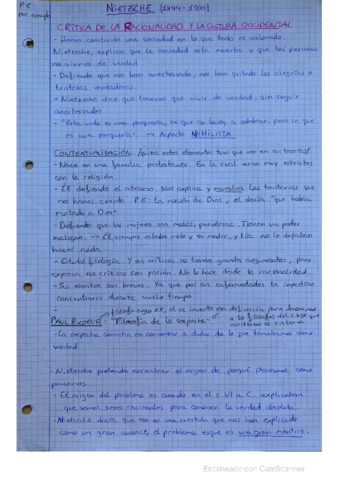 P.E
por ejemplo
NIETZSCHE (1844-1900)
CRÍTICA DE LA RACIONALIDAD Y LA CULTURA OCCIDENTAL
- Hemos construido una sociedad en la que todo es valorado.
Nietzsche, explica que la sociedad está muerta y que las personas
no vivimos de verdad
- Defiende que nos han anestesiado, nos han quitado las alegrías o
tristezas verdaderas
- Nietzsche dice que tenemos que vivir de verdad, sin seguir
anestesiados
- "Esta vida es una porquería, ya que no la voy a saborear, pero se que
es una porquería". -> Aspecto NIHILISTA
CONTEXTUALIZACIÓN:
- Nace en una familia protestante. En la cual eran muy estrictos
con la religión.
- Él defiende el ateísmo. Nos explica y muestra las tonterías que
nos hemos creído. P.E: La noción de Dios, el decía "que había
matado a Dios"
- Defiende que las mujeres son malas, perversas. Tienen un poder
maligno. -> El siempre
hacer nada
- Estudió filología. Y sus críticas no tienen grandes argumentos, pero
expresa sus críticas con pasión. No lo hace desde la racionalidad
- Sus escritos son breves. Ya que por sus enfermedades le impedían
concentrarse durante mucho tiempo.
filósofo siglo XX, el se inventó en definición para denominar
PAUL RICOEUR: "Filosofía de la sospecha"
a los filósofos del s.XIX que
- La sospecha consiste en comenzar a dudar de lo que tomábamos como
verdad.
- Nietzsche pretende encontrar el origen de porqué pensamos como
pensamos
- El origen del problema es cuando en el S.VI a.C. explicaban
que somos seres racionales para conocer la verdad absoluta.
- Nietzsche decía que eso es una cuestión que nos han explicado
como un gran avance, el problema es que es una gran mentira.
Escaneado con CamScanner